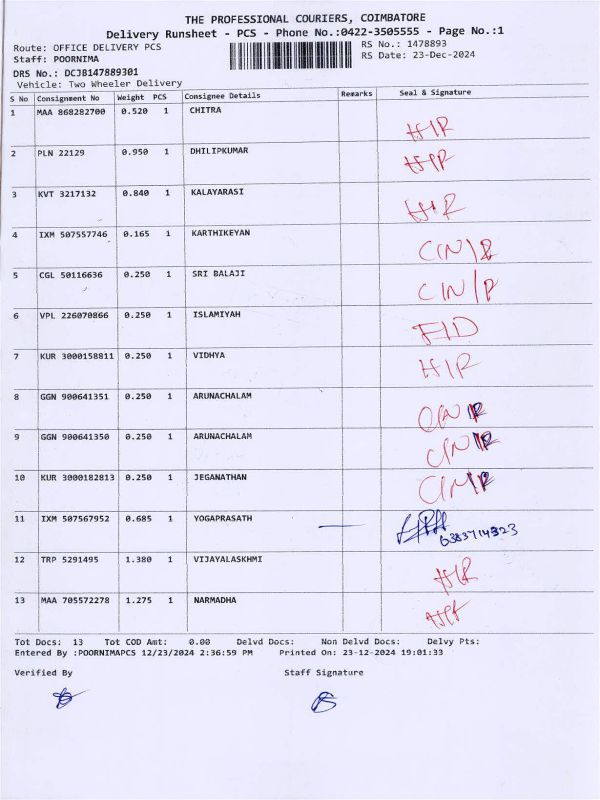 THE PROFESSIONAL COURIERS, COIMBATORE
Delivery Runsheet - PCS - Phone No.:0422-3505555 - Page No.:1
Route: OFFICE DELIVERY PCS RS No.: 1478893
Staff: POORNIMA RS Date: 23-Dec-2024
DRS No.: DCJB147889301
Vehicle: Two Wheeler Delivery
S No Consignment No Weight PCS Consignee Details Remarks Seal & Signature
1 MAA 868282700 0.520 1 CHITRA H/R
2 PLN 22129 0.950 1 DHILIPKUMAR
3 KVT 3217132 0.840 1 KALAYARASI H/R
4 IXM 507557746 0.165 1 KARTHIKEYAN C(N)R
5 CGL 50116636 0.250 1 SRI BALAJI C(N/P
6 VPL 226070866 0.250 1 ISLAMIYAH
7 KUR 3000158811 0.250 1 VIDHYA H/R
8 GGN 900641351 0.250 1 ARUNACHALAM
9 GGN 900641350 0.250 1 ARUNACHALAM
10 KUR 3000182813 0.250 1 JEGANATHAN
11 IXM 507567952 0.685 1 YOGAPRASATH 6383714323
12 TRP 5291495 1.380 1 VIJAYALASKHMI H/R
13 MAA 705572278 1.275 1 NARMADHA
Tot Docs: 13 Tot COD Amt: 0.00 Delvd Docs: Non Delvd Docs: Delvy Pts:
Entered By :POORNIMAPCS 12/23/2024 2:36:59 PM Printed On: 23-12-2024 19:01:33
Verified By Staff Signature